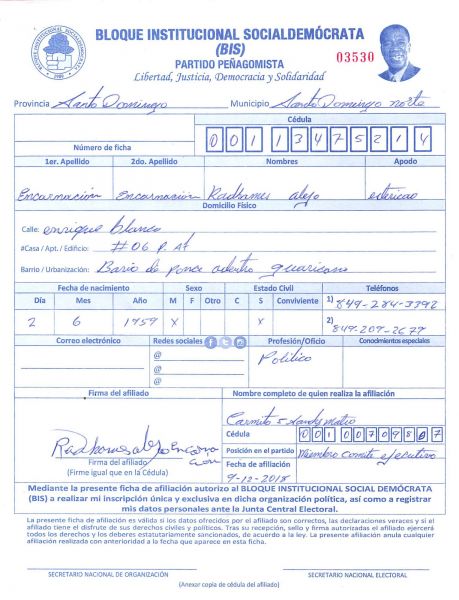 BLOQUE INSTITUCIONAL SOCIALDEMÓCRATA
(BIS)
PARTIDO PEÑAGOMISTA
Libertad, Justicia, Democracia y Solidaridad
03530
Provincia Santo Domingo Municipio Santo Domingo norte
Cédula
Número de ficha 0 0 1 1 3 4 7 5 2 1 4
1er. Apellido 2do. Apellido Nombres Apodo
Encarnación Encarnación Radhames alejo
Domicilio Físico
Calle: enrique blanco
#Casa / Apt. / Edificio: #06 P. At
Barrio / Urbanización: Bario de ponce adentro guaricano
Fecha de nacimiento Sexo Estado Civil Teléfonos
Día Mes Año M F Otro C S Conviviente 1) 849-284-3392
2 6 1959 X X 2) 849-207-2677
Correo electrónico Redes sociales Profesión/Oficio Conocimientos especiales
@ Politico
@
@
Firma del afiliado Nombre completo de quien realiza la afiliación
Cédula
Posición en el partido Miembro comite ejecutivo
Firma del afiliado
(Firme igual que en la Cédula)
Fecha de afiliación
9-12-2018
Mediante la presente ficha de afiliación autorizo al BLOQUE INSTITUCIONAL SOCIAL DEMÓCRATA
(BIS) a realizar mi inscripción única y exclusiva en dicha organización política, así como a registrar
mis datos personales ante la Junta Central Electoral.
La presente ficha de afiliación es válida si los datos ofrecidos por el afiliado son correctos, las declaraciones veraces y si el
afiliado tiene el disfrute de sus derechos civiles y políticos. Tras su recepción, sello y firma autorizadas el afiliado ejercerá
todos los derechos y los deberes estatutariamente sancionados, de acuerdo a la ley. La presente afiliación anula cualquier
afiliación realizada con anterioridad a la fecha que aparece en esta ficha.
SECRETARIO NACIONAL DE ORGANIZACIÓN SECRETARIO NACIONAL ELECTORAL
(Anexar copia de cédula del afiliado)